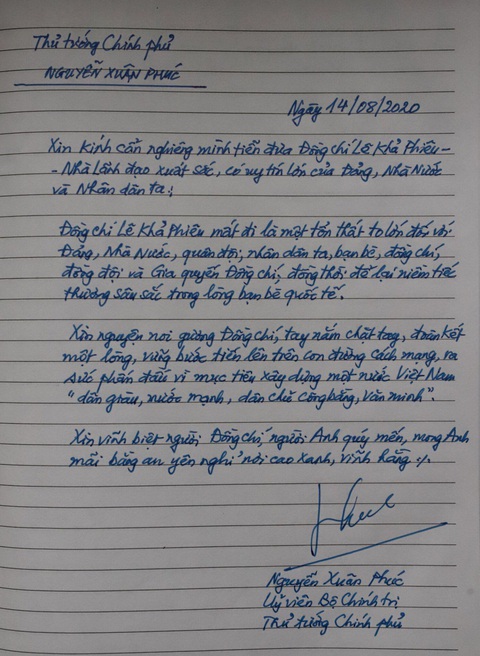 Thủ tướng Chính phủ
NGUYỄN XUÂN PHÚC
Ngày 14/08/2020
Xin kính cẩn nghiêng mình tiễn đưa Đồng chí Lê Khả Phiêu -
- Nhà lãnh đạo xuất sắc, có uy tín lớn của Đảng, Nhà Nước
và Nhân dân ta;
Đồng chí Lê Khả Phiêu mất đi là một tổn thất to lớn đối với
Đảng, Nhà Nước, quân đội, nhân dân ta, bạn bè, đồng chí,
đồng đội và Gia quyến Đồng chí, đồng thời để lại niềm tiếc
thương sâu sắc trong lòng bạn bè quốc tế.
Xin nguyện noi gương Đồng chí, tay nắm chặt tay, đoàn kết
một lòng, vững bước tiến lên trên con đường cách mạng, ra
sức phấn đấu vì mục tiêu xây dựng một nước Việt Nam
"dân giàu, nước mạnh, dân chủ công bằng, văn minh".
Xin vĩnh biệt người Đồng chí, người Anh quý mến, mong Anh
mãi bằng an yên nghỉ nơi cao xanh, vĩnh hằng ./.
Nguyễn Xuân Phúc
Uỷ viên Bộ Chính trị
Thủ tướng Chính phủ